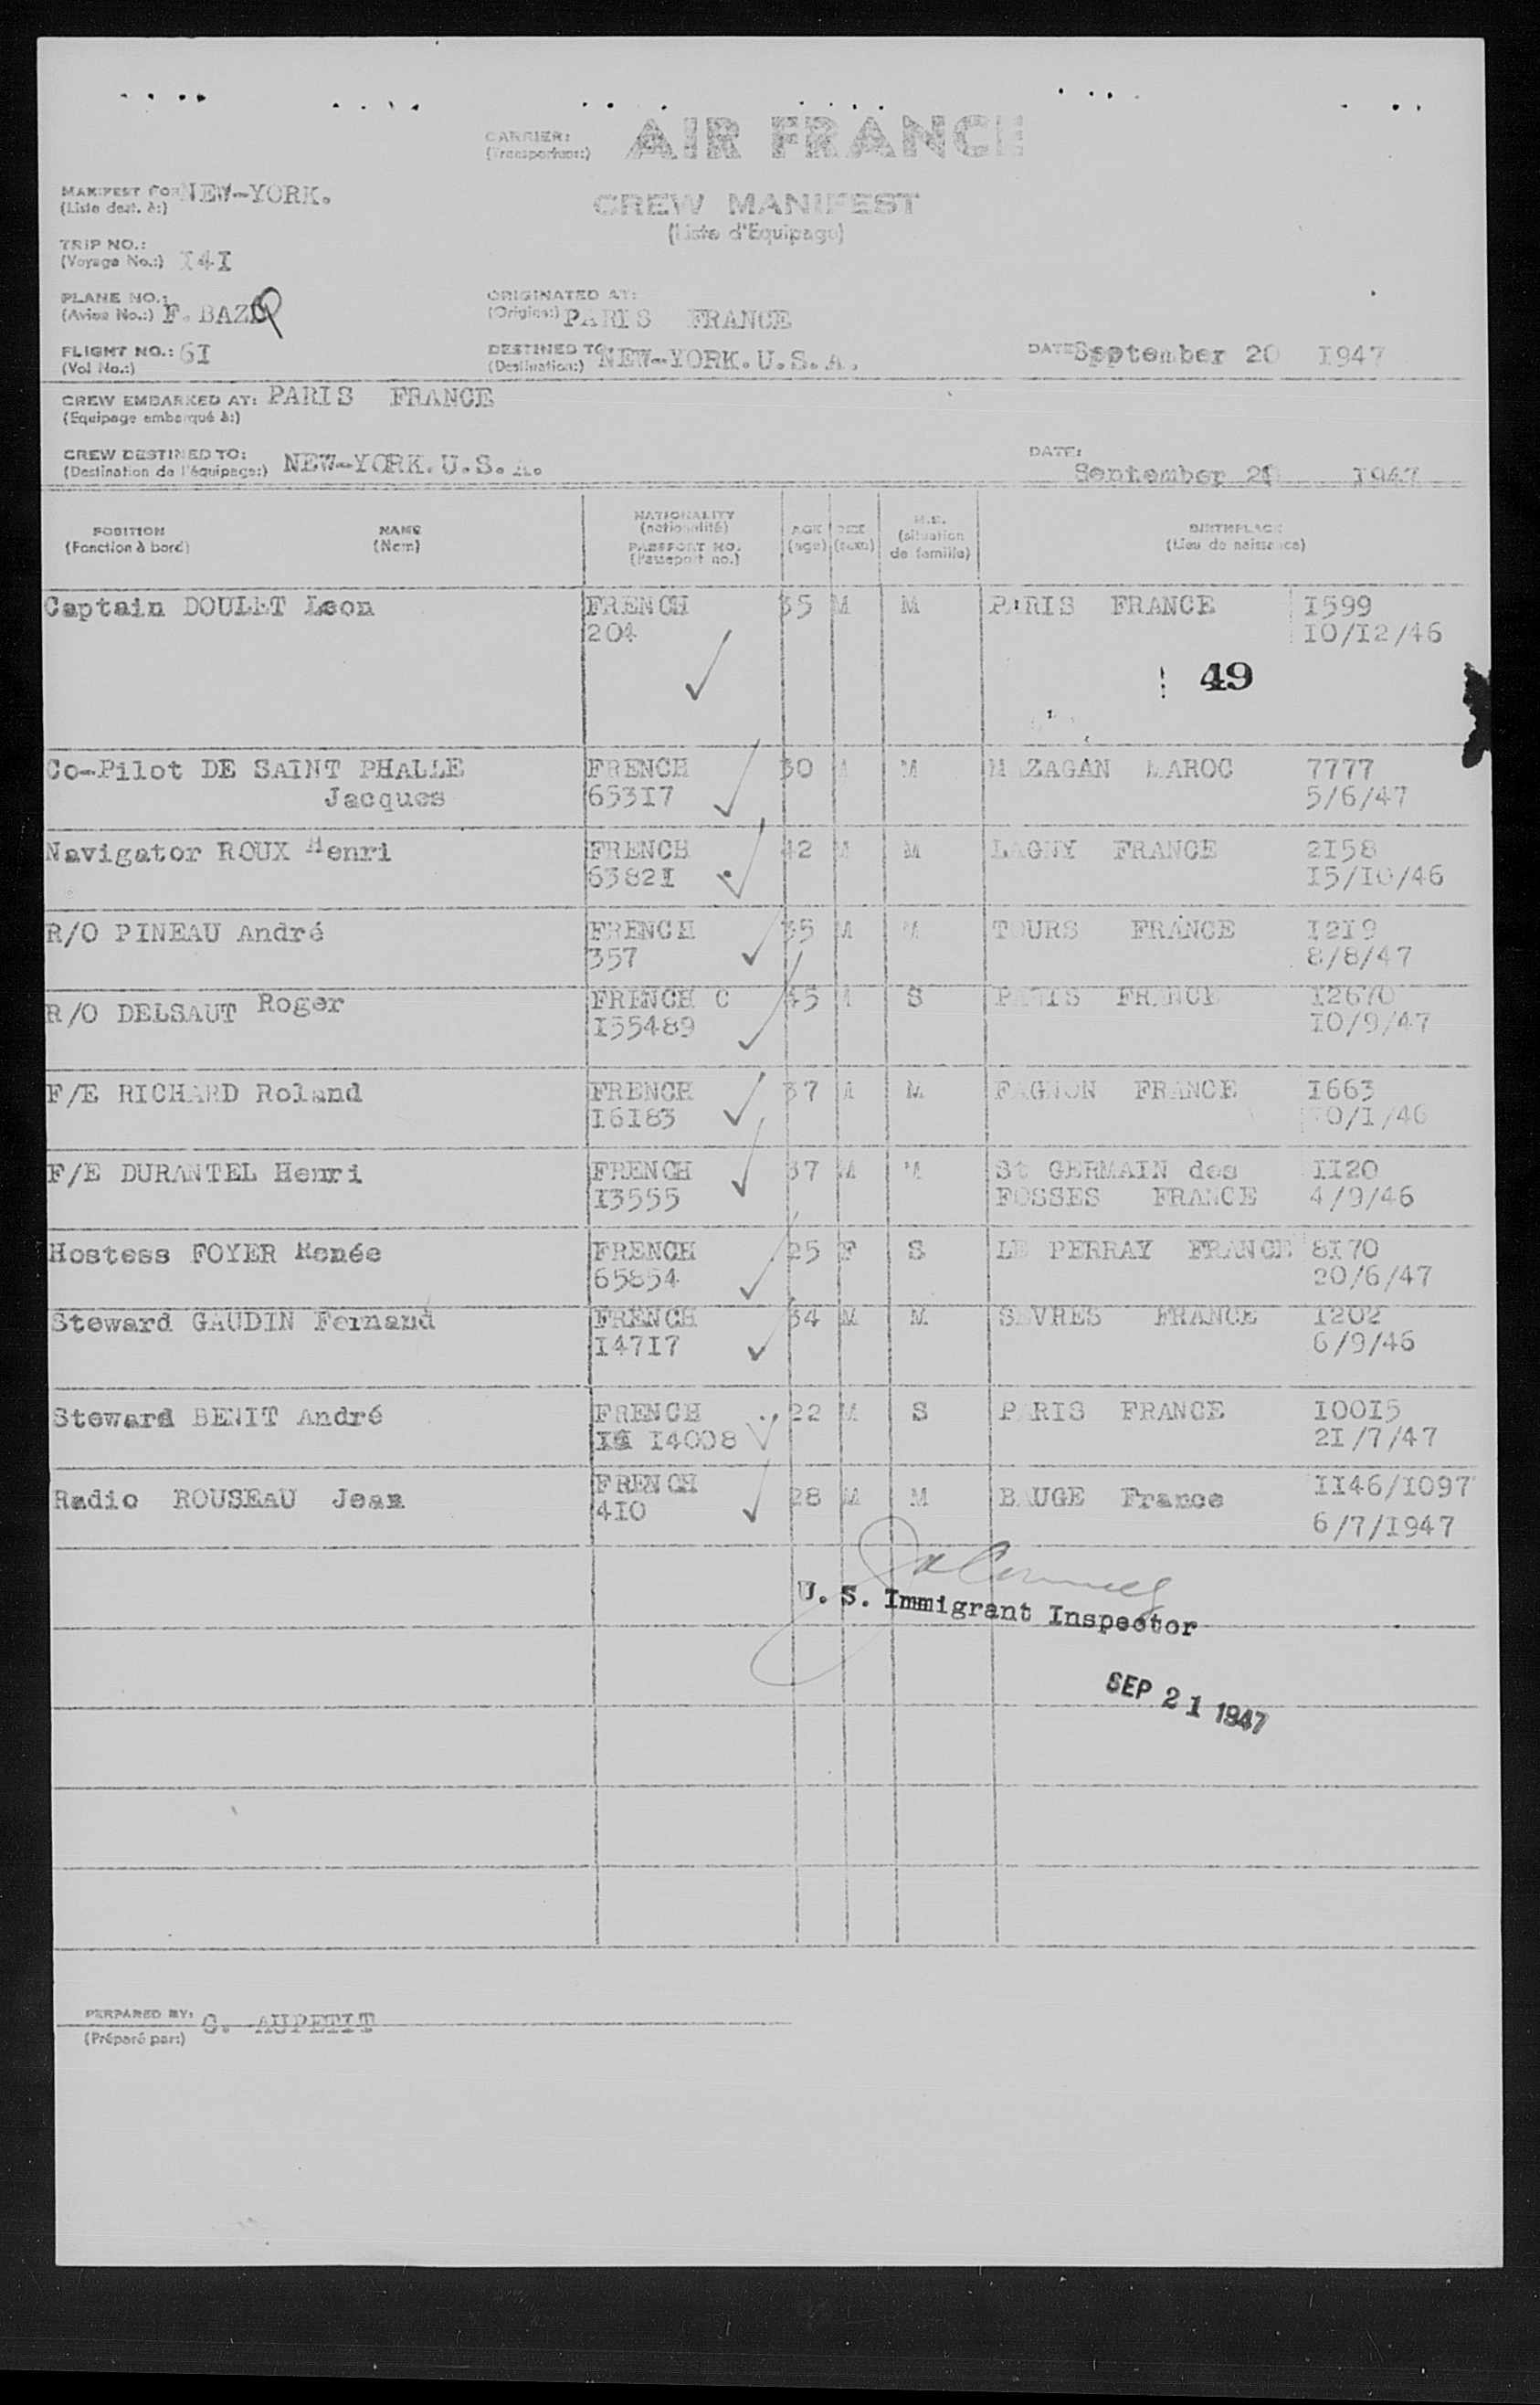 CARRIER: AIR FRANCE
(Transporteur:)
MANIFEST FOR NEW-YORK.
(Liste dest. à:)
CREW MANIFEST
(Liste d'Equipage)
TRIP NO.:
(Voyage No.:) I4I
PLANE NO.:
(Avion No.:) F.BAZQ
ORIGINATED AT:
(Origine:) PARIS FRANCE
FLIGHT NO.: 6I
(Vol No.:)
DESTINED TO:
(Destination:) NEW-YORK.U.S.A.
DATE September 20 I947
CREW EMBARKED AT: PARIS FRANCE
(Equipage embarqué à:)
CREW DESTINED TO:
(Destination de l'équipage:) NEW-YORK.U.S.A.
DATE:
September 20 I947
POSITION
(Fonction à bord)
NAME
(Nom)
NATIONALITY
(nationalité)
PASSPORT NO.
(Passeport no.)
AGE
(age)
SEX
(sexe)
M.S.
(situation
de famille)
BIRTHPLACE
(Lieu de naissance)
Captain DOULET Leon FRENCH 35 M M PARIS FRANCE I599
204 I0/I2/46
49
Co-Pilot DE SAINT PHALLE FRENCH 30 M M MAZAGAN MAROC 7777
Jacques 653I7 5/6/47
Navigator ROUX Henri FRENCH 42 M M LAGNY FRANCE 2I58
6382I I5/I0/46
R/O PINEAU André FRENCH 35 M M TOURS FRANCE I2I9
357 8/8/47
R/O DELSAUT Roger FRENCH C 45 M S PARIS FRANCE I2670
I55489 I0/9/47
F/E RICHARD Roland FRENCH 37 M M FAGNON FRANCE I663
I6I83 0/I/46
F/E DURANTEL Henri FRENCH 37 M M St GERMAIN des II20
I3555 FOSSES FRANCE 4/9/46
Hostess FOYER Renée FRENCH 25 F S LE PERRAY FRANCE 8I70
65854 20/6/47
Steward GAUDIN Fernand FRENCH 34 M M SEVRES FRANCE I202
I47I7 6/9/46
Steward BENIT André FRENCH 22 M S PARIS FRANCE I00I5
I4008 2I/7/47
Radio ROUSEAU Jean FRENCH 28 M M BAUGE France II46/I097
4I0 6/7/I947
U. S. Immigrant Inspector
SEP 21 1947
PERPARED BY: G. AUPETIT
(Préparé par:)